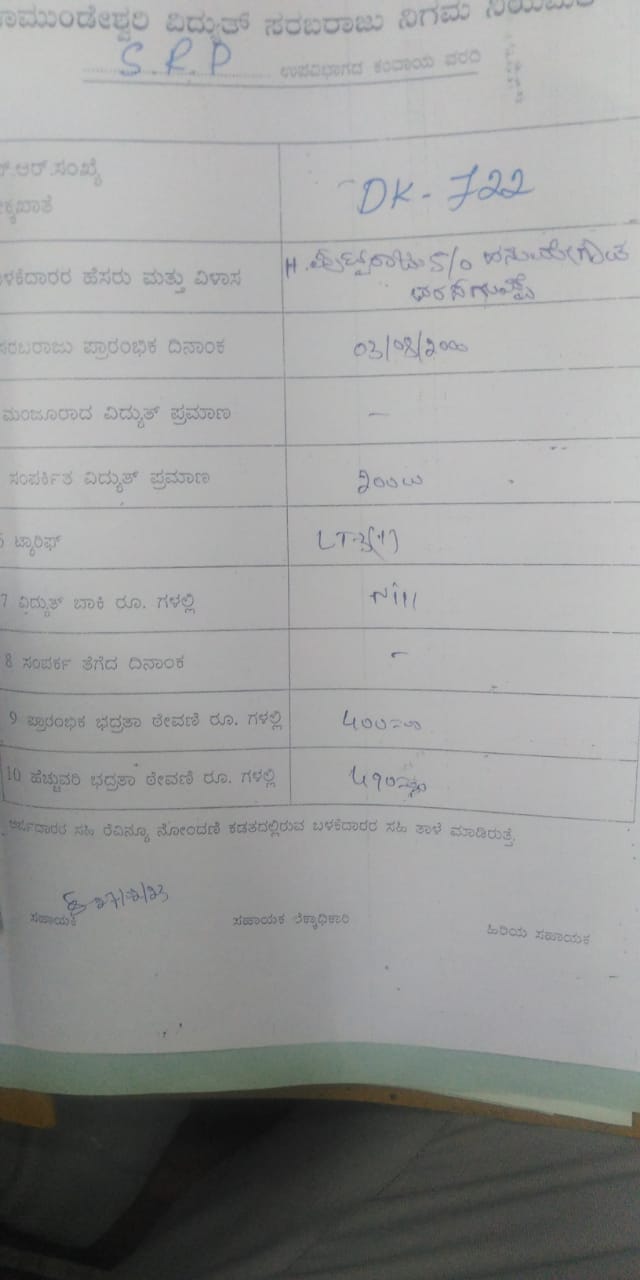 ಾಮುಂಡೇಶ್ವರಿ ವಿದ್ಯುತ್ ಸರಬರಾಜು ನಿಗಮ
S.R.P ಉಪವಿಭಾಗದ ಕಂದಾಯ ವರದಿ
ಆರ್.ಸಂಖ್ಯೆ
DK-722
ಬಳಕೆದಾರರ ಹೆಸರು ಮತ್ತು ವಿಳಾಸ H. S/o
ಸರಬರಾಜು ಪ್ರಾರಂಭಿಕ ದಿನಾಂಕ 03/08/೨೦೦೦
ಮಂಜೂರಾದ ವಿದ್ಯುತ್ ಪ್ರಮಾಣ -
ಸಂಪರ್ಕಿತ ವಿದ್ಯುತ್ ಪ್ರಮಾಣ ೨೦೦W
ಟ್ಯಾರಿಫ್
7 ವಿದ್ಯುತ್ ಬಾಕಿ ರೂ. ಗಳಲ್ಲಿ Nill
8 ಸಂಪರ್ಕ ತೆಗೆದ ದಿನಾಂಕ -
9 ಪ್ರಾರಂಭಿಕ ಭದ್ರತಾ ಠೇವಣಿ ರೂ. ಗಳಲ್ಲಿ ೪೦೦=೦೦
10 ಹೆಚ್ಚುವರಿ ಭದ್ರತಾ ಠೇವಣಿ ರೂ. ಗಳಲ್ಲಿ
ಅರ್ಜಿದಾರರ ಸಹಿ ರೆವಿನ್ಯೂ ನೋಂದಣಿ ಕಡತದಲ್ಲಿರುವ ಬಳಕೆದಾರರ ಸಹಿ ತಾಳೆ ಮಾಡಿರುತ್ತೆ.
ಸಹಾಯಕ ಸಹಾಯಕ ಲೆಕ್ಕಾಧಿಕಾರಿ ಹಿರಿಯ ಸಹಾಯಕ